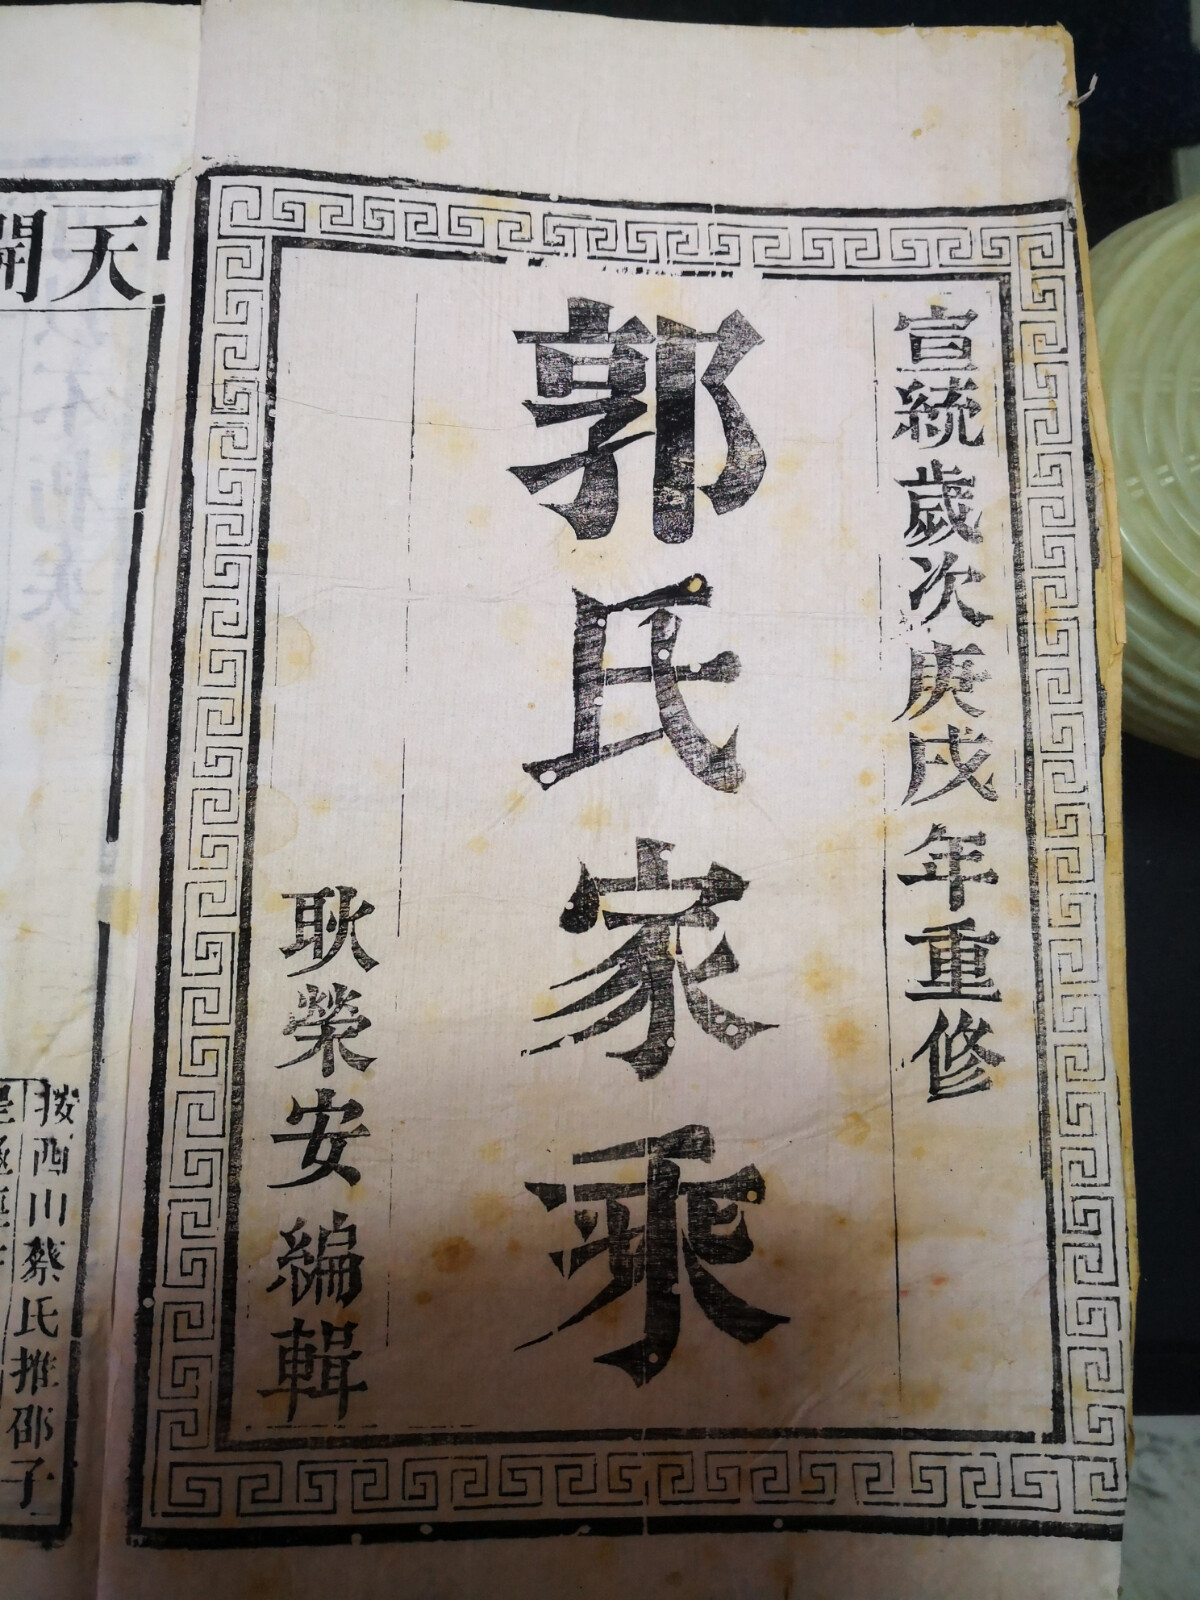 宣統歲次庚戌年重修
郭氏家乘
耿榮安編輯
天開
按西山蔡氏推邵子